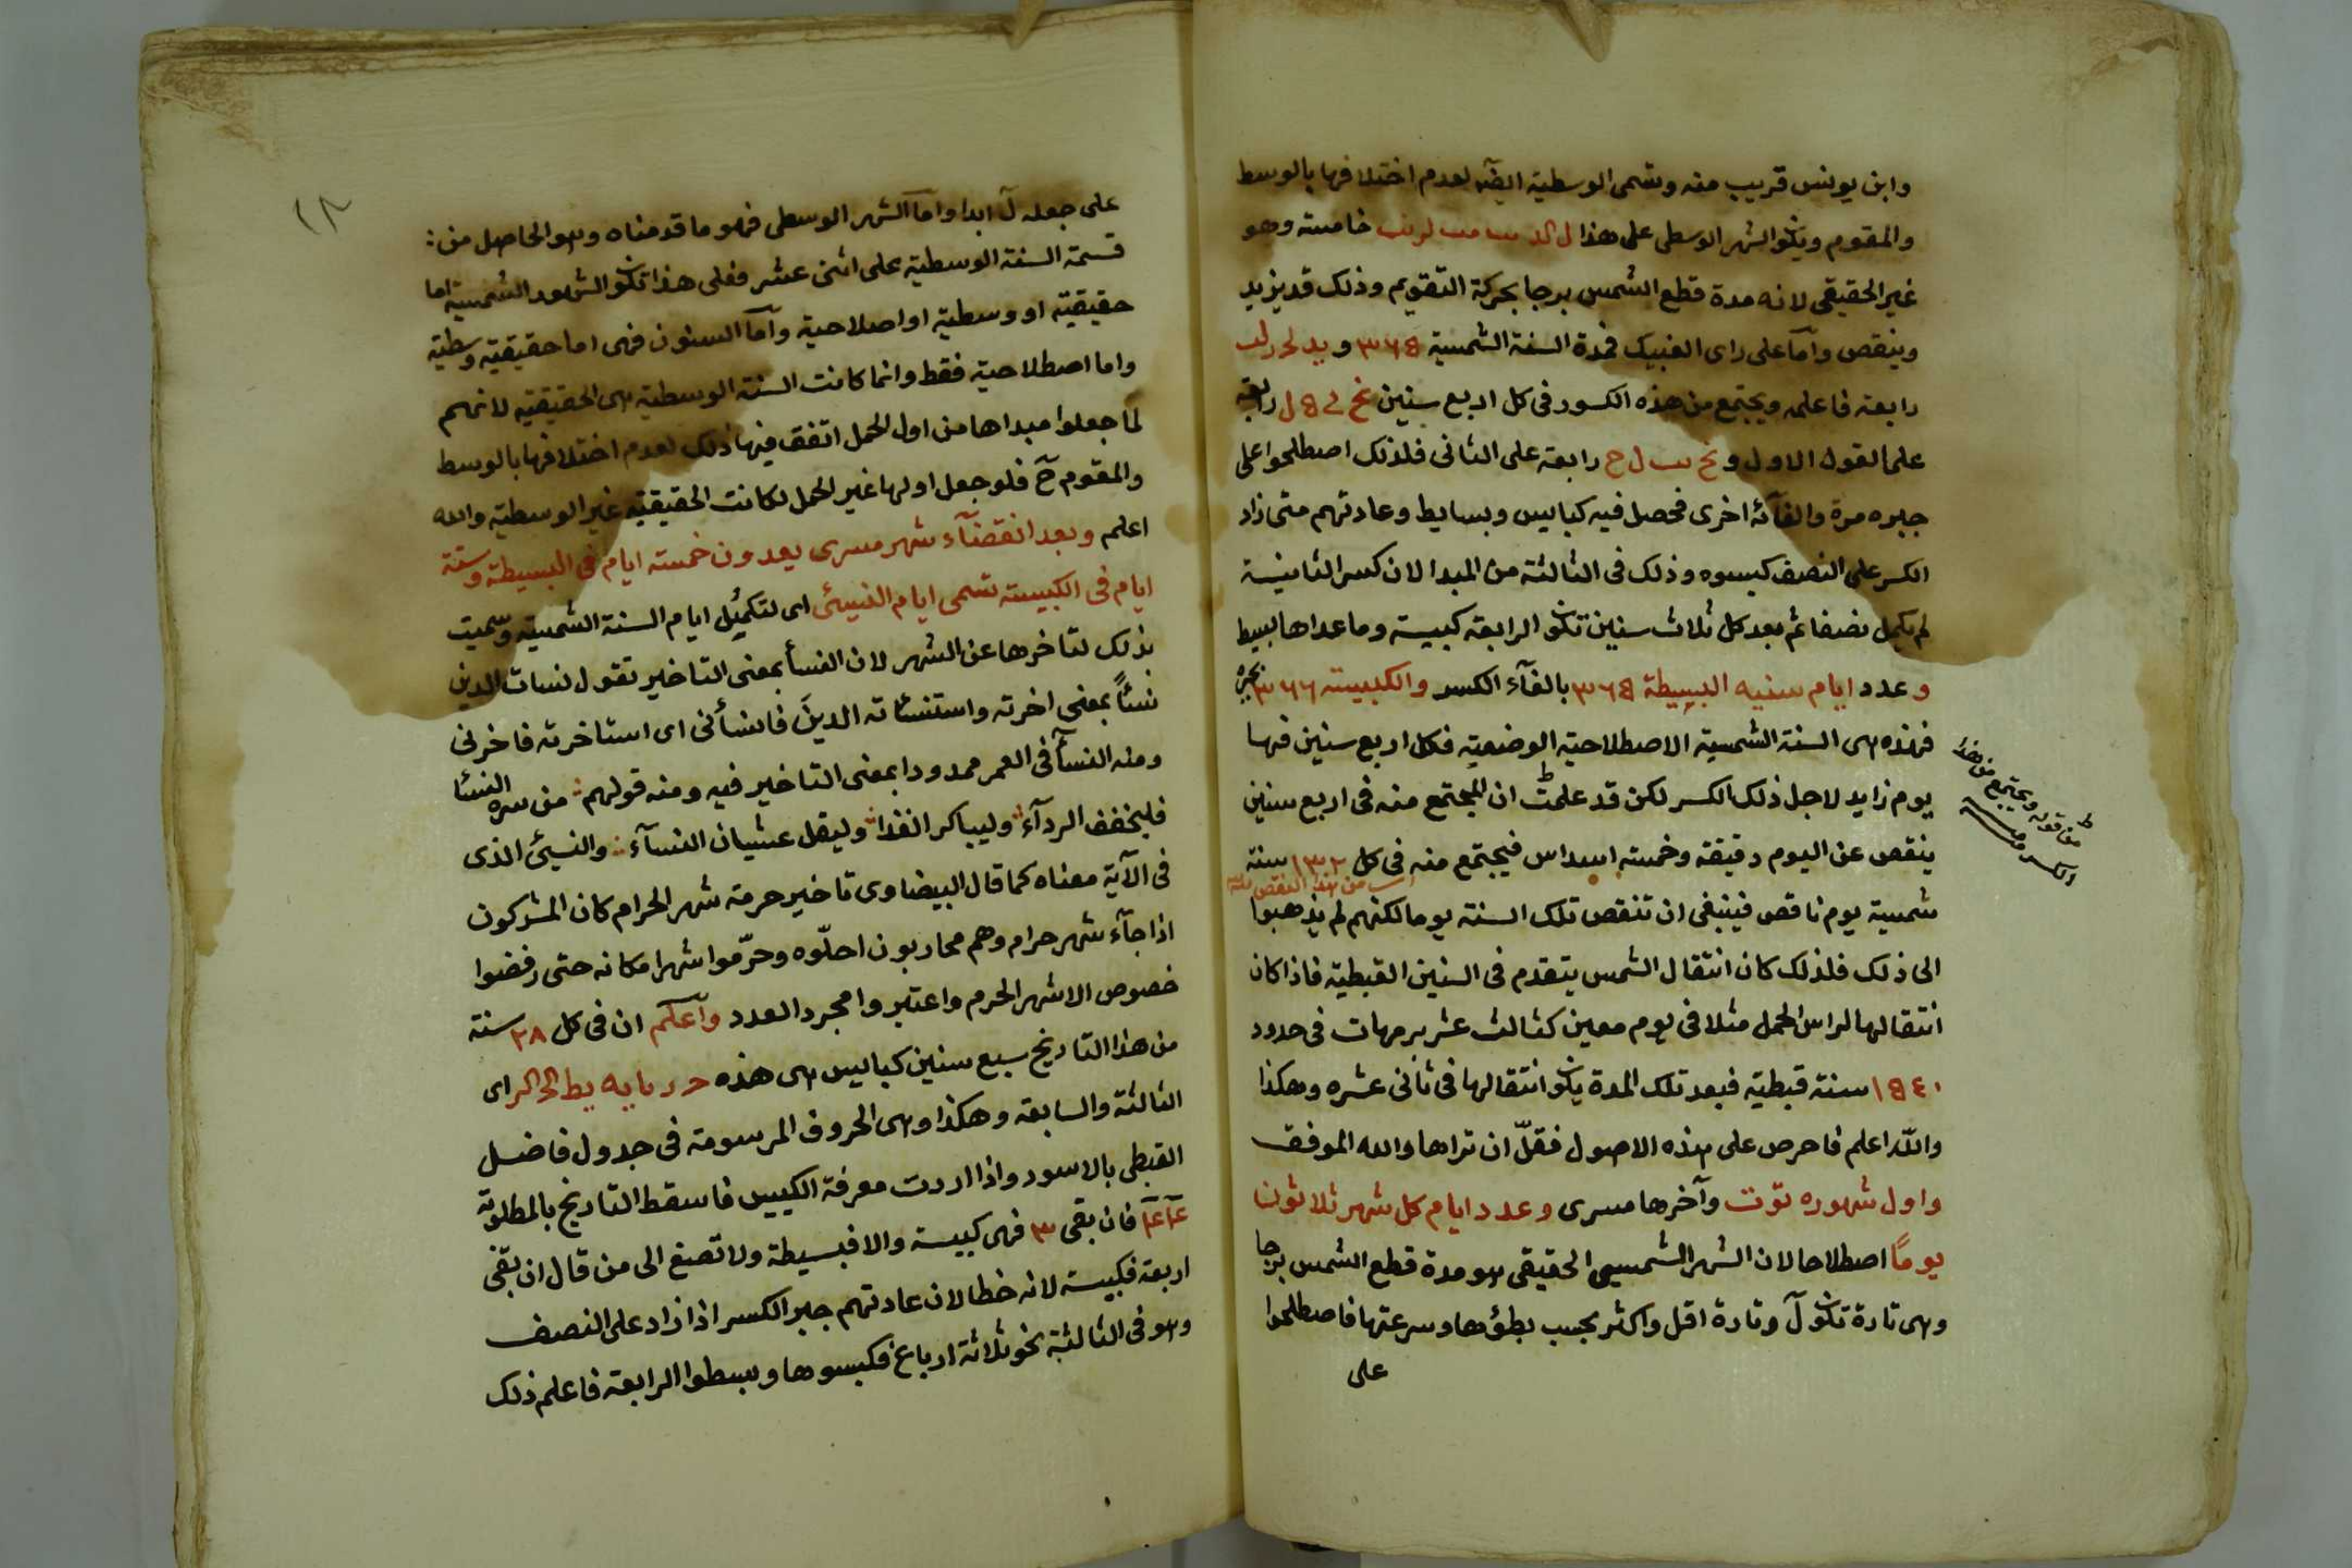 وابن يونس قريب منه وتسمى الوسطية ايضا لعدم اختلافها بالوسط
والمقوم ويكون الشهر الوسطى على هذا خامسة وهو
غير الحقيقى لانه مدة قطع الشمس برجا بحركة التقويم وذلك قد يزيد
وينقص وآما على راى الغبيك فمدة السنة الشمسية ٣٦٥ و يد لح
رابعة فاعلمه ويجتمع من هذه الكسور فى كل اربع سنين نح رابعة
على القول الاول و نح رابعة على الثانى فلذلك اصطلحوا على
جبره مرة والغآئه اخرى فحصل فيه كبايس وبسايط وعادتهم متى زاد
الكسر على النصف كبسوه وذلك فى الثالثة من المبدا لان كسر الثانية
لم يكمل نصفا ثم بعد كل ثلاث سنين تكون الرابعة كبيسة وما عداها بسيط
وعدد ايام سنيه البسيطة ٣٦٥ بالغآء الكسر والكبيسة ٣٦٦ بجبره
فهذه هى السنة الشمسية الاصطلاحية الوضعية فكل اربع سنين فيها
يوم زايد لاجل ذلك الكسر لكن قد علمت ان المجتمع منه فى اربع سنين
ينقص عن اليوم دقيقة وخمسة اسداس فيجتمع منه فى كل ١٣٢ سنة
اى من هذا النقص
شمسية يوم ناقص فينبغى ان تنقص تلك السنة يوما لكنهم لم يذهبوا
الى ذلك فلذلك كان انتقال الشمس يتقدم فى السنين القبطية فاذا كان
انتقالها لراس الحمل مثلا فى يوم معين كثالث عشر برمهات فى حدود
١٥٤٠ سنة قبطية فبعد تلك المدة يكون انتقالها فى ثانى عشره وهكذا
والله اعلم فاحرص على هذه الاصول فقلّ ان تراها والله الموفق
واول شهوره توت وآخرها مسرى وعدد ايام كل شهر ثلاثون
يومًا اصطلاحا لان الشهر الشمسى الحقيقى هو مدة قطع الشمس برجا
وهى تارة تكون لَ وتارة اقل واكثر بحسب بطؤها وسرعتها فاصطلحوا
على
من قوله ويجتمع من هذه
الكسور
١٣
على جعله لَ ابدا واما الشهر الوسطى فهو ما قدمناه وهو الحاصل من:
قسمة السنة الوسطية على اثنى عشر فعلى هذا تكون الشهور الشمسية اما
حقيقية او وسطية او اصلاحية وآما السنون فهى اما حقيقية وسطية
واما اصطلاحية فقط وانما كانت السنة الوسطية هى الحقيقية لانهم
لما جعلوا مبداها من اول الحمل اتفق فيها ذلك لعدم اختلافها بالوسط
والمقوم حَ فلو جعل اولها غير الحمل لكانت الحقيقية غير الوسطية والله
اعلم وبعد انقضآء شهر مسرى يعدون خمسة ايام فى البسيطة وستة
ايام فى الكبيسة تسمى ايام النسيئ اى لتكميل ايام السنة الشمسية وسميت
بذلك لتاخرها عن الشهر لان النسأ بمعنى التاخير تقول نسات الدين
نسئاً بمعنى اخرته واستنسئاته الدينَ فانسأنى اى استاخرته فاخرنى
ومنه النسآ فى العمر ممدودا بمعنى التاخير فيه ومنه قولهم من سره النسئا
فليخفف الردآء وليباكر الغدا وليقل غشيان النسآء والنسيئ الذى
فى الآية معناه كما قال البيضاوى تاخير حرمة شهر الحرام كان المشركون
اذا جآء شهر حرام وهم محاربون احلّوه وحرّموا شهرا مكانه حتى رفضوا
خصوص الاشهر الحرم واعتبروا مجرد العدد وآعلم ان فى كل ٢٨ سنة
من هذا التاريخ سبع سنين كبايس هى هذه ح ر يا يه يط كح كر اى
الثالثة والسابعة وهكذا وهى الحروف المرسومة فى جدول فاضل
القبطى بالاسود واذا اردت معرفة الكبيس فاسقط التاريخ بالمطلوبة
عآعآ فان بقى ٣ فهى كبيسة والا فبسيطة ولا تصغ الى من قال ان بقى
اربعة فكبيسة لانه خطا لان عادتهم جبر الكسر اذا زاد على النصف
وهو فى الثالثة نحو ثلاثة ارباع فكبسوها وبسطوا الرابعة فاعلم ذلك